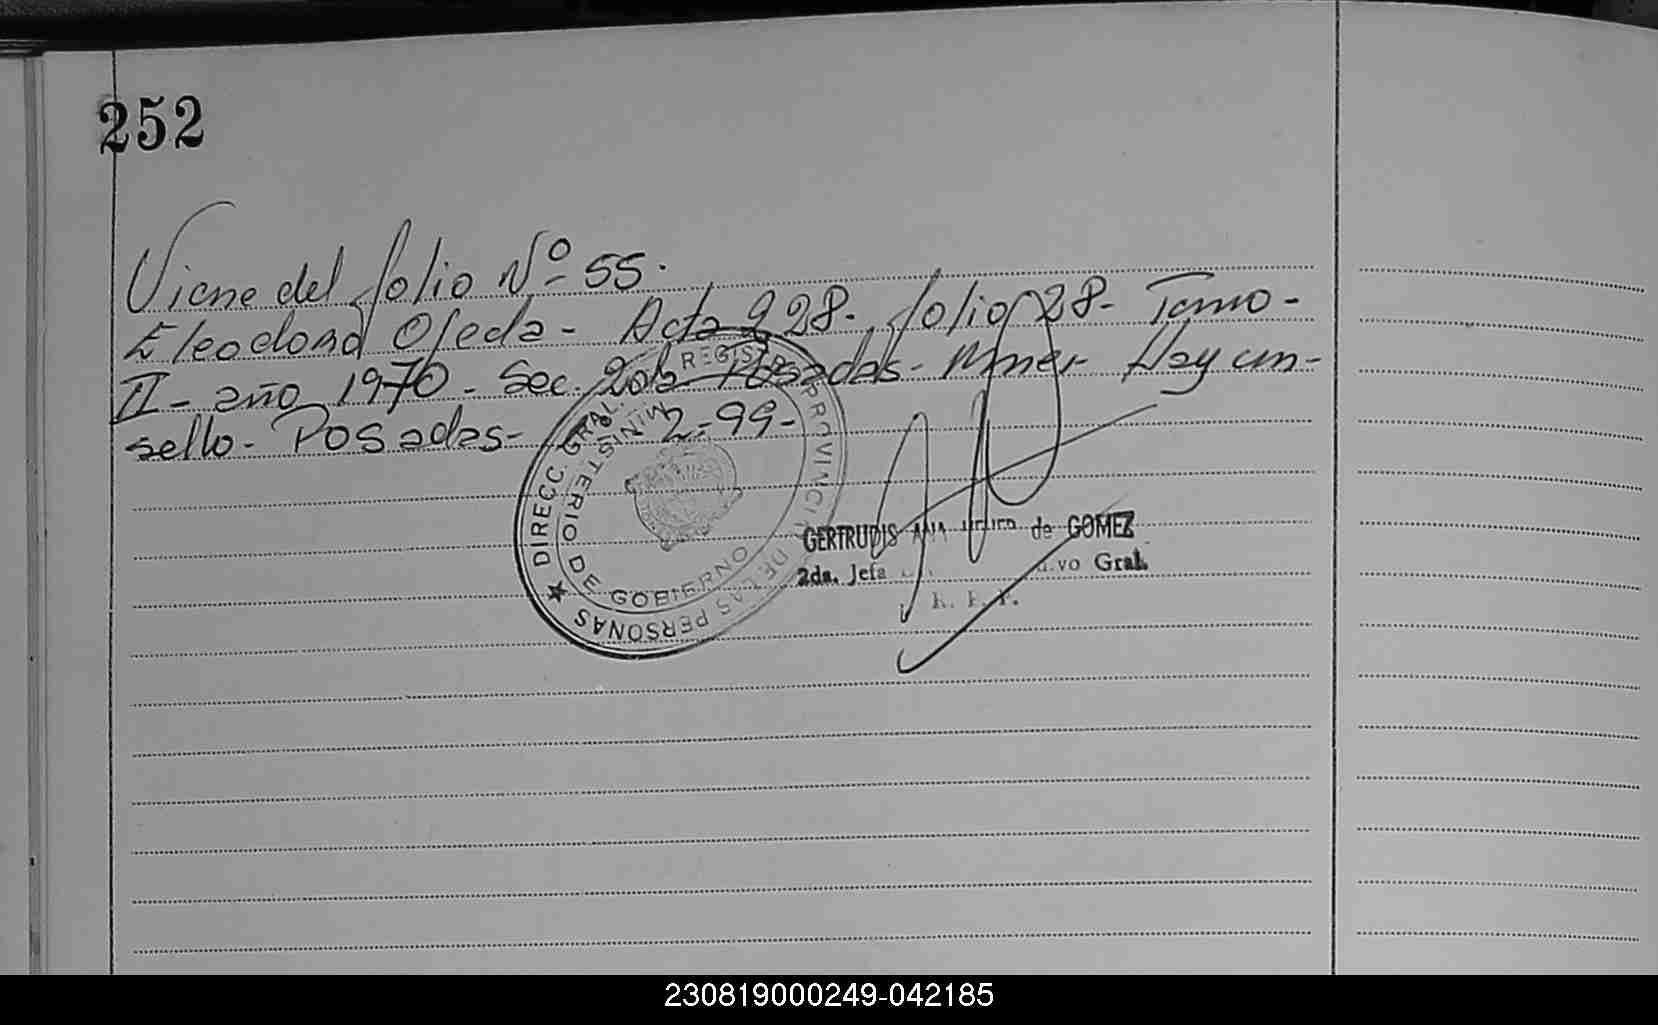 252
Viene del folio Nº 55.
Eleodora Ojeda - Acta 928. folio 28 - Tomo -
II - año 1970 - Sec. 2da Posadas - Mnes - Hay un -
sello - Posadas - 2-99 -
REGIST PROVINCI DE LAS PERSONAS
★ DIRECC. GRAL.
MINISTERIO DE GOBIERNO
GERTRUDIS ANA de GOMEZ
2da. Jefa Gral.
R. P. P.
230819000249-042185